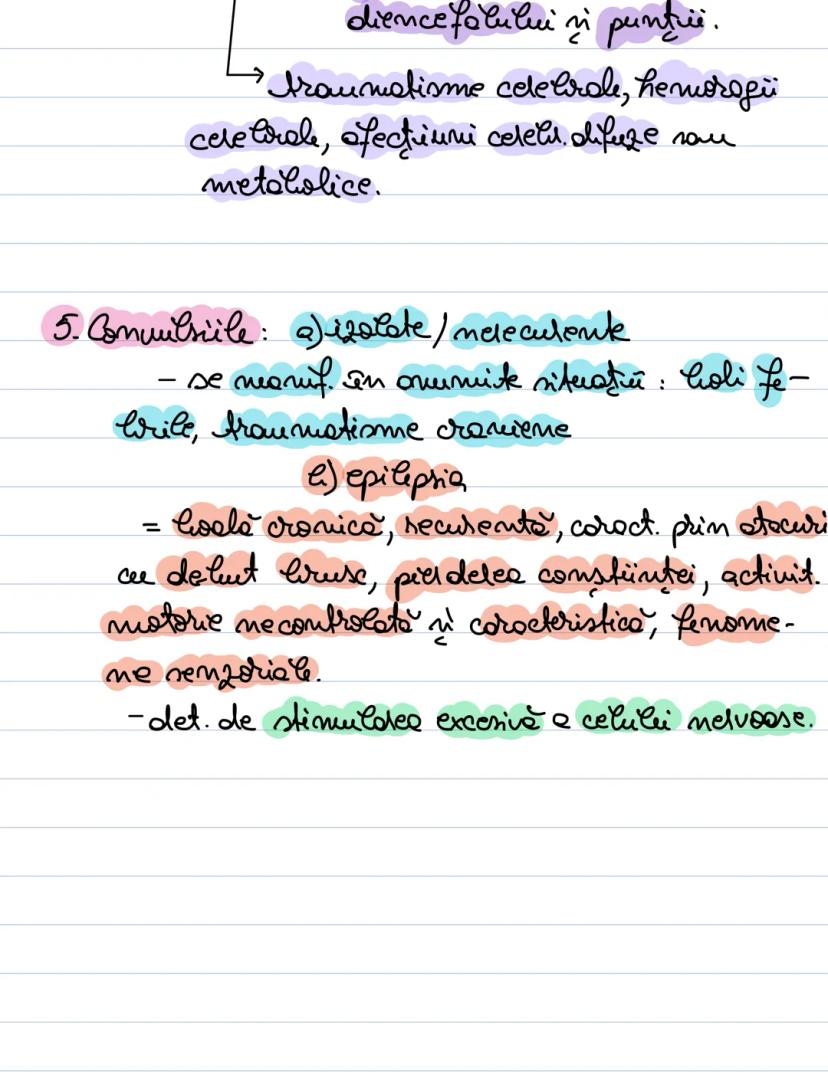 diencefalului și punții.
traumatisme cerebrale, hemoragii
cerebrale, afecțiuni cerebr. difuze sau
metabolice.
5. Convulsiile: a) izolate/nerecurente
- se manif. în anumite situații: boli fe-
brile, traumatisme craniene
b) epilepsia
= boală cronică, recurentă, caract. prin atacuri
cu debut brusc, pierderea conștiinței, activit.
motorie necontrolată și caracteristică, fenome-
ne senzoriale.
- det. de stimularea excesivă a celulei nervoase.